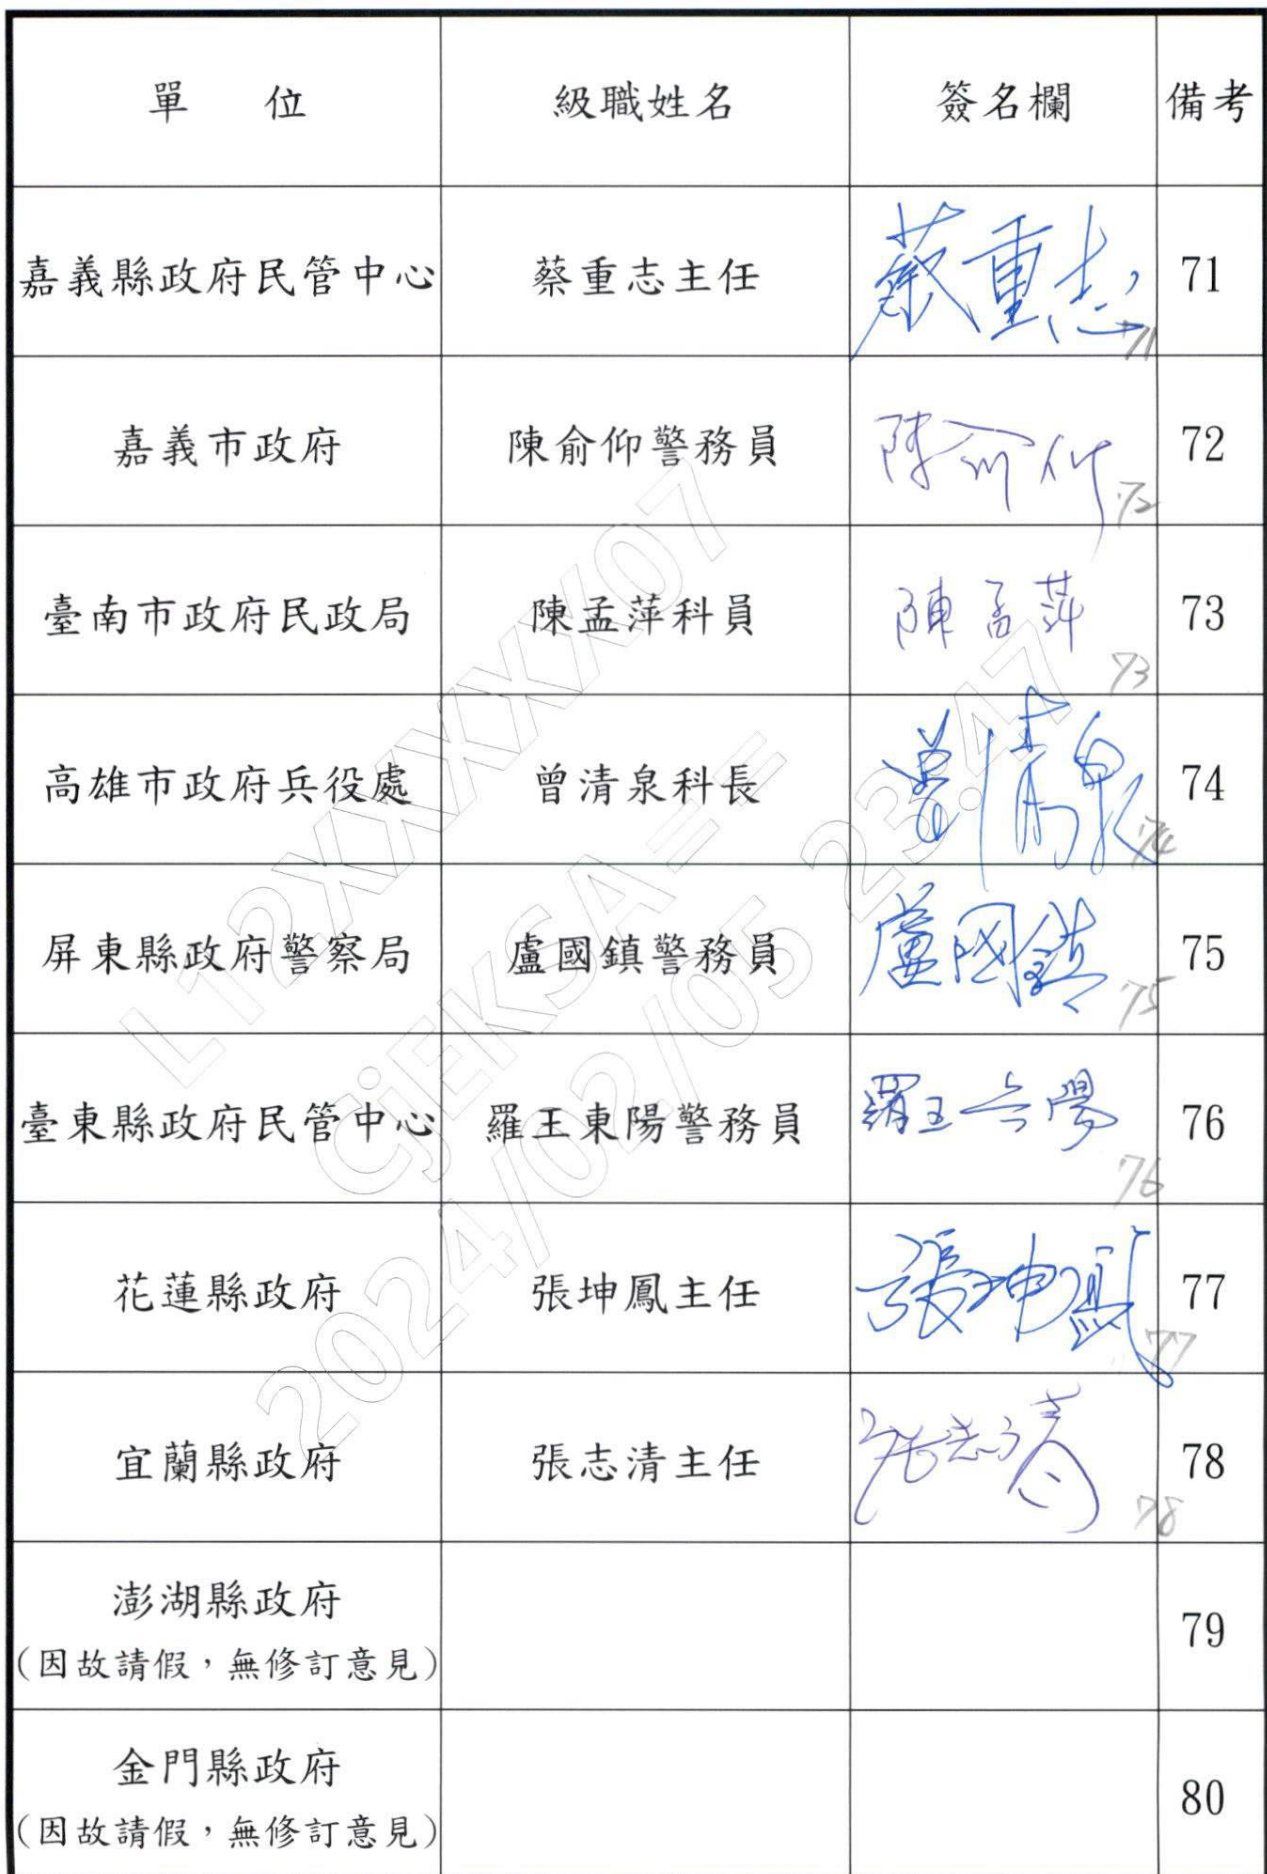 單　位 級職姓名 簽名欄 備考
嘉義縣政府民管中心 蔡重志主任 蔡重志 71 71
嘉義市政府 陳俞仰警務員 陳俞仰 72 72
臺南市政府民政局 陳孟萍科員 陳孟萍 73 73
高雄市政府兵役處 曾清泉科長 曾清泉 74 74
屏東縣政府警察局 盧國鎮警務員 盧國鎮 75 75
臺東縣政府民管中心 羅王東陽警務員 羅王东陽 76 76
花蓮縣政府 張坤鳳主任 張坤鳳 77 77
宜蘭縣政府 張志清主任 張志清 78 78
澎湖縣政府
(因故請假，無修訂意見) 79
金門縣政府
(因故請假，無修訂意見) 80
L12XXXXX07
CjEKSA==
2024/02/05 23:47